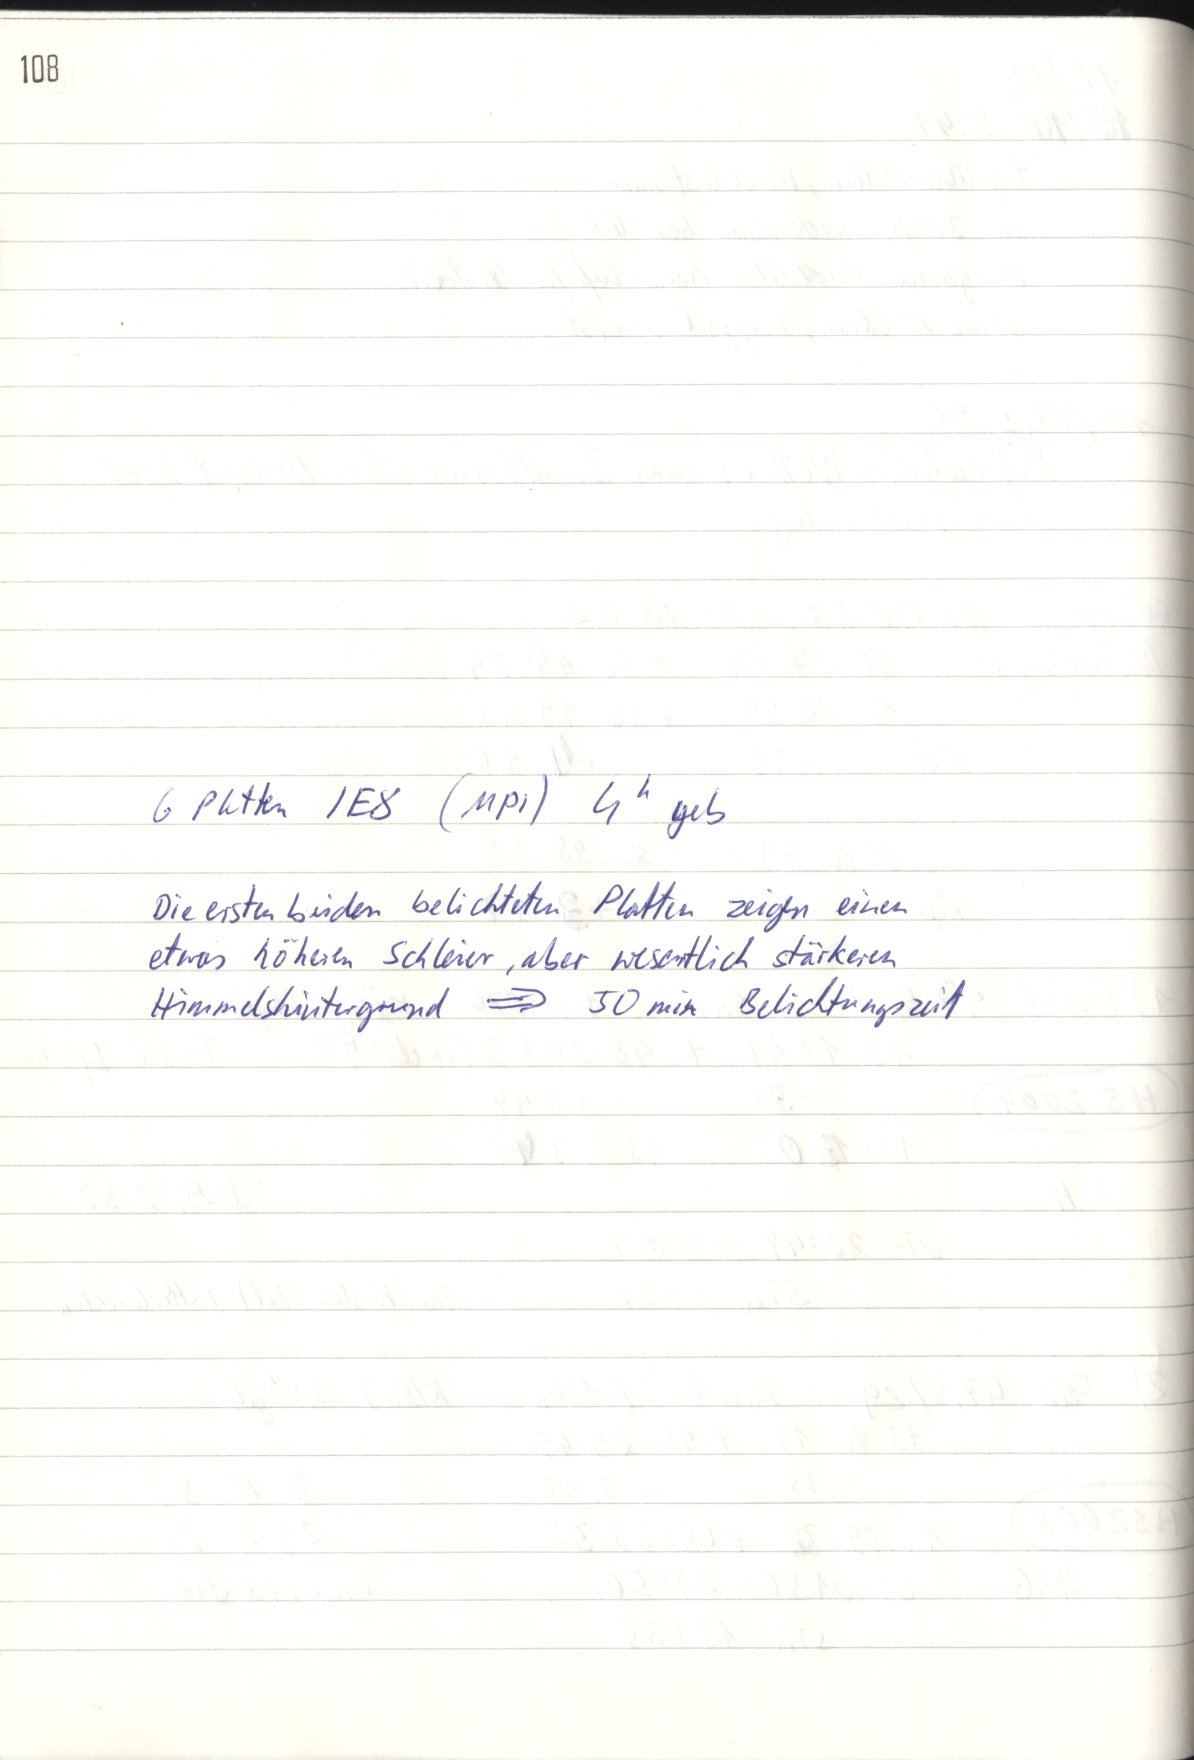 108
6 Platten IE8 (MPI) 4ʰ geb
Die ersten beiden belichteten Platten zeigen einen
etwas höheren Schleier, aber wesentlich stärkeren
Himmelshintergrund ⇒ 50 min Belichtungszeit